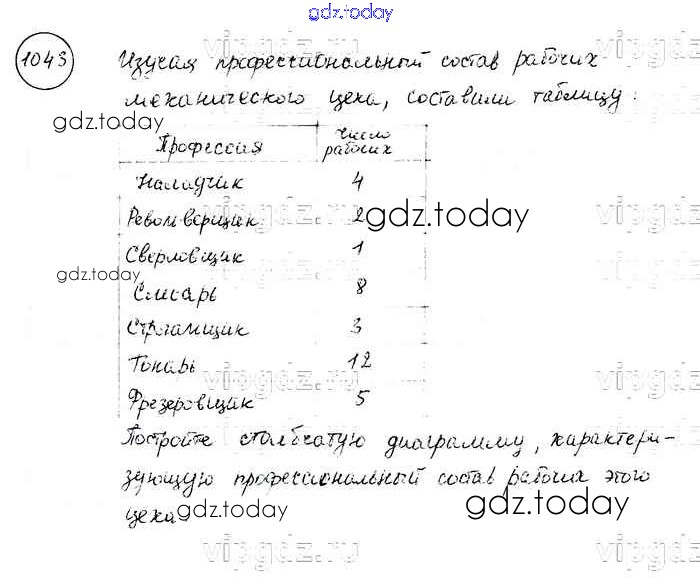 gdz.today
1043 Изучая профессиональный состав рабочих
механического цеха, составили таблицу:
Профессия Число рабочих
Наладчик 4
Револьверщик 2
Сверловщик 1
Слесарь 8
Строгальщик 3
Токарь 12
Фрезеровщик 5
Постройте столбчатую диаграмму, характери-
зующую профессиональный состав рабочих этого
цеха.
vipgdz.ru
gdz.today
gdz.today
gdz.today
gdz.today
gdz.today
vipgdz.ru